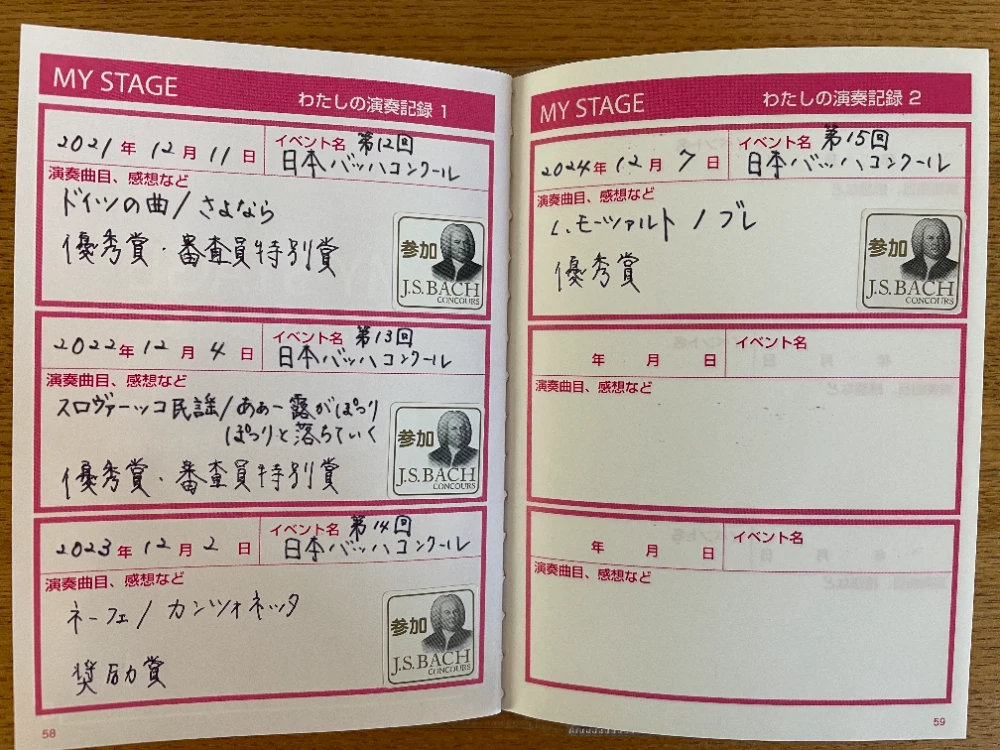 MY STAGE わたしの演奏記録 1
2021年 12月 11日
イベント名 第12回
日本バッハコンクール
演奏曲目、感想など
ドイツの曲/さよなら
優秀賞・審査員特別賞
参加
J.S.BACH
CONCOURS
2022年 12月 4日
イベント名 第13回
日本バッハコンクール
演奏曲目、感想など
スロヴァーッコ民謡/あぁー露がぽっり
ぽっりと落ちていく
優秀賞・審査員特別賞
参加
J.S.BACH
CONCOURS
2023年 12月 2日
イベント名 第14回
日本バッハコンクール
演奏曲目、感想など
ネーフェ/カンツォネッタ
奨励賞
参加
J.S.BACH
CONCOURS
58
MY STAGE わたしの演奏記録 2
2024年 12月 7日
イベント名 第15回
日本バッハコンクール
演奏曲目、感想など
L.モーツァルト/ブレ
優秀賞
参加
J.S.BACH
CONCOURS
年 月 日
イベント名
演奏曲目、感想など
年 月 日
イベント名
演奏曲目、感想など
59